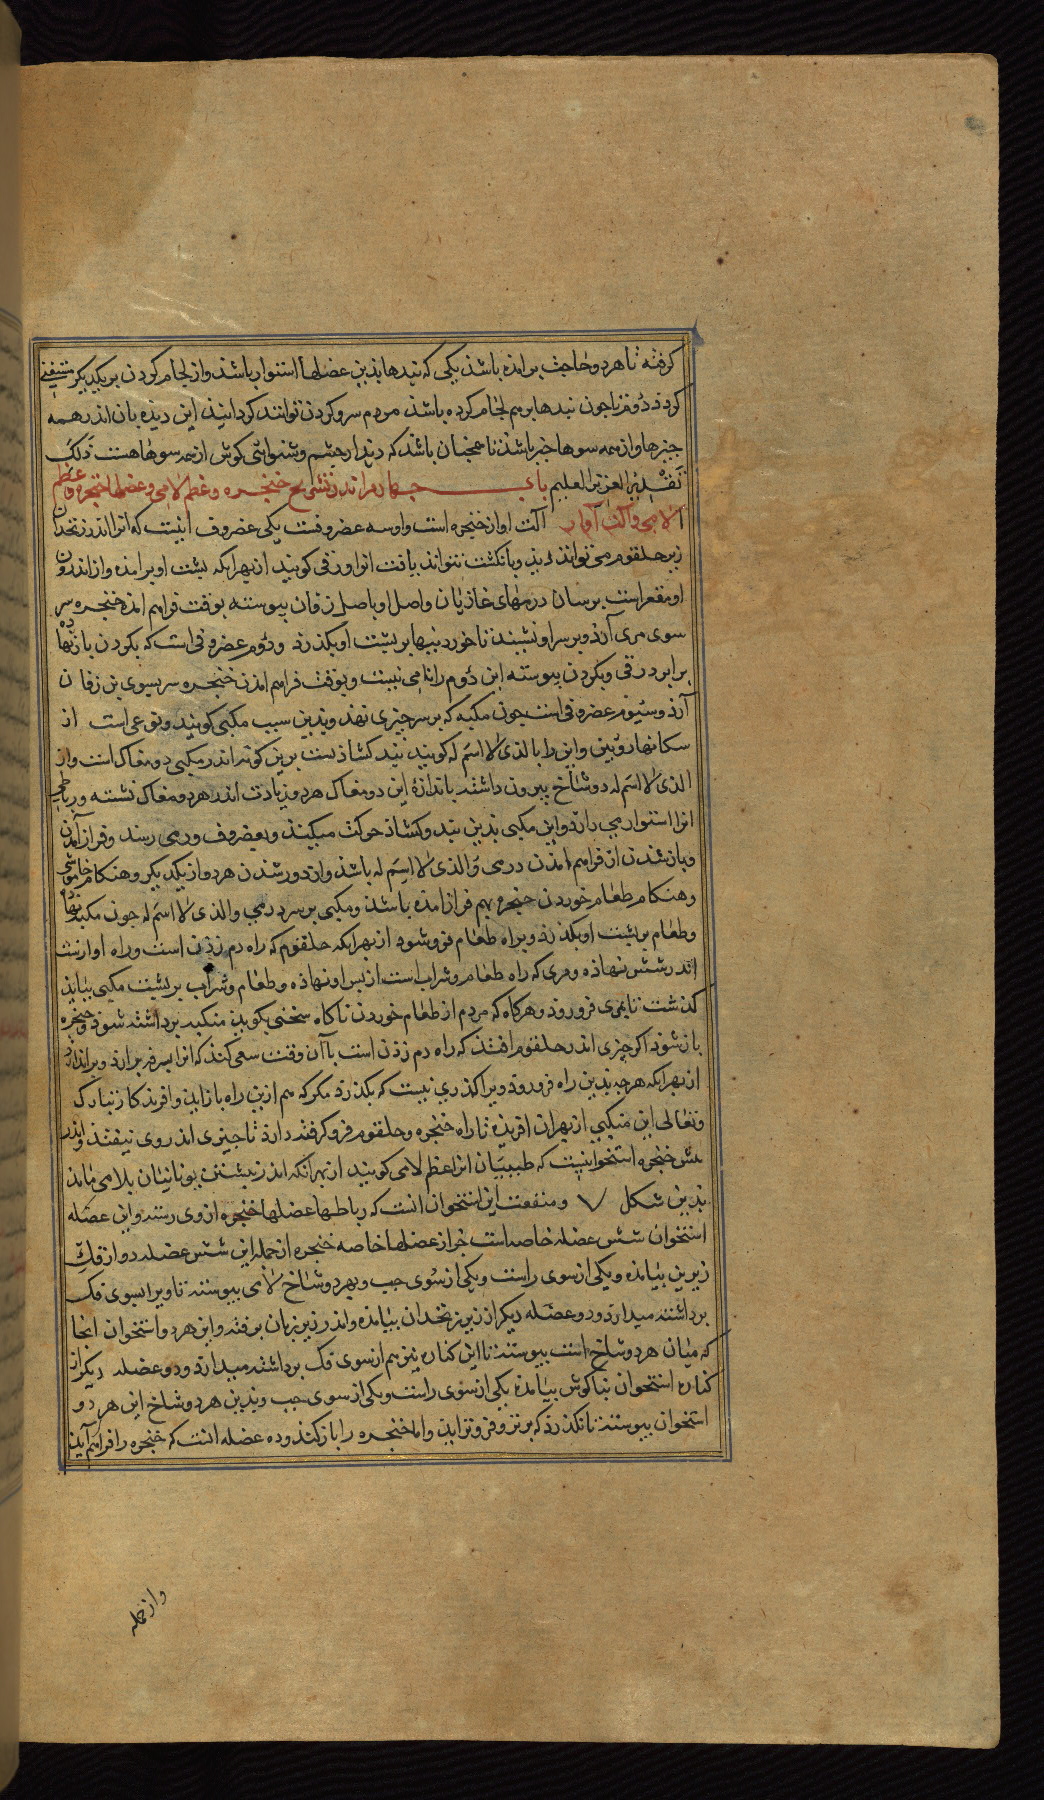 کرفته تا هر دو حاجت برامده باشذ یکی که بندها بذین عضلها استوار باشذ و از لجام کردن بر یکدیکر مستغنی
کردذ دوم تا جون بندها بر هم لجام کرده باشذ مردم سر و کردن توانند کردانیذ این دیذه بان اندر همه
جیزها و از همه سوها خبر باشذ تا همجنان باشذ که دیدار جشم و شنوائی کوش از همه سوها هست ذلک
تقدیر العزیز العلیم باب جهارم اندر تشریح خنجره و عظم لامی و عضلها خنجره و عظم
الامی و الت آواز آلت اواز خنجره است و او سه غضروفست یکی غضروف انیست که انرا اندر زنخدان
زیر حلقوم می تواند دیذ و بانکشت بتواند یافت انرا درقی کویند از بهر انکه بشت او برامده و از اندرون
او مقعر است برسان درمهای غازیان و اصل او با اصل زفان بیوسته بوقت فراهم امدن خنجره سر
سوی مری آرذ و بر سر او نشیند تا خوردنیها بر بشت او بکذرذ و دوم غضروفی است که بکردن باز نهاده
برابر درقی و بکردن بیوسته این دوم را نامی نیست و بوقت فراهم امدن خنجره سر بسوی بن زفان
آرذ و سیوم غضروفی است جون مکبه که بر سر جیزی نهند و بدین سبب مکبی کویند و نوعی است از
سکانها رویین و این را با الذی لا اسم له کویند بند کشاذست برین کونه اندر مکبی دو مغاک است و از
الذی لا اسم له دو شاخ بیرون داشته باندازۀ این دو مغاک هر دو زیادت اندر هر دو مغاک نشسته و رباطی
انرا استوار می دارذ و این مکبی بذین بند و کشاذ حرکت میکند و بغضروف درمی رسد و فراز آمدن
و باز شدن از فراهم امدن درمی و الذی لا اسم له باشذ و از دور شدن هر دو از یکدیکر و هنکام خاموشی
و هنکام طعام خوردن خنجره بهم فراز امده باشذ و مکبی بر سر درمی و الذی لا اسم له جون مکبه نهاده
و طعام بر بشت او بکذرذ و براه طعام فرو شوذ از بهر انکه حلقوم که راه دم زذن است و راه اواز است
اندر شش نهاذه و مری که راه طعام و شراب است از بس او نهاذه و طعام و شراب بر بشت مکبی ببایذ
کذشت تا بمری فرو روذ و هر کاه که مردم از طعام خوردن ناکاه سخنی بکوید مکبه برداشته شوذ و خنجره
باز شوذ اکر جیزی اندر حلقوم افتذ که راه دم زذن است باآن وقت سعی کند که انرا بسرفه برارد و براندازد
از بهر انکه هر جه بذین راه فرو روذ ویرا کذری نیست که بکذرذ مکر که هم ازین راه باز اید و افریذکار تبارک
و تعالی این مکبی از بهر ان افریذه تا راه خنجره و حلقوم فرو کرفته دارذ تا جیزی اندر وی نیفتذ و اندر
بش خنجره استخوانیست که طبیبان انرا عظم لامی کویند از بهر انکه اندر نبشتن یونانیان بلامی ماند
بذین شکل \/ و منفعت این استخوان انست که رباطها عضلها خنجره از وی رسته و این عضله
استخوان شش عضله خاصه است جز از عضلها خاصه خنجره از جمله این شش عضله دو از فک
زیرین بیامذه و یکی از سوی راست و یکی از سوی جب و بهر دو شاخ لامی بیوسته تا ویرا بسوی فک
برداشته میدارد و دو عضله دیکر از زیر زنخدان بیامذه و اندر زیر زبان برفته و این هر دو استخوان انجا
که میان هر دو شاخ است بیوسته تا این کناره نیز هم از سوی فک برداشته میدارد و دو عضله دیکر از
کناره استخوان بناکوش بیامذه یکی از سوی راست و یکی از سوی جب و بذین هر دو شاخ این هر دو
استخوان بیوسته تا نکذرذ که برتر و فروتر ایذ و اما خنجره را باز کند و ده عضله است که خنجره را فراهم آید
و از جمله